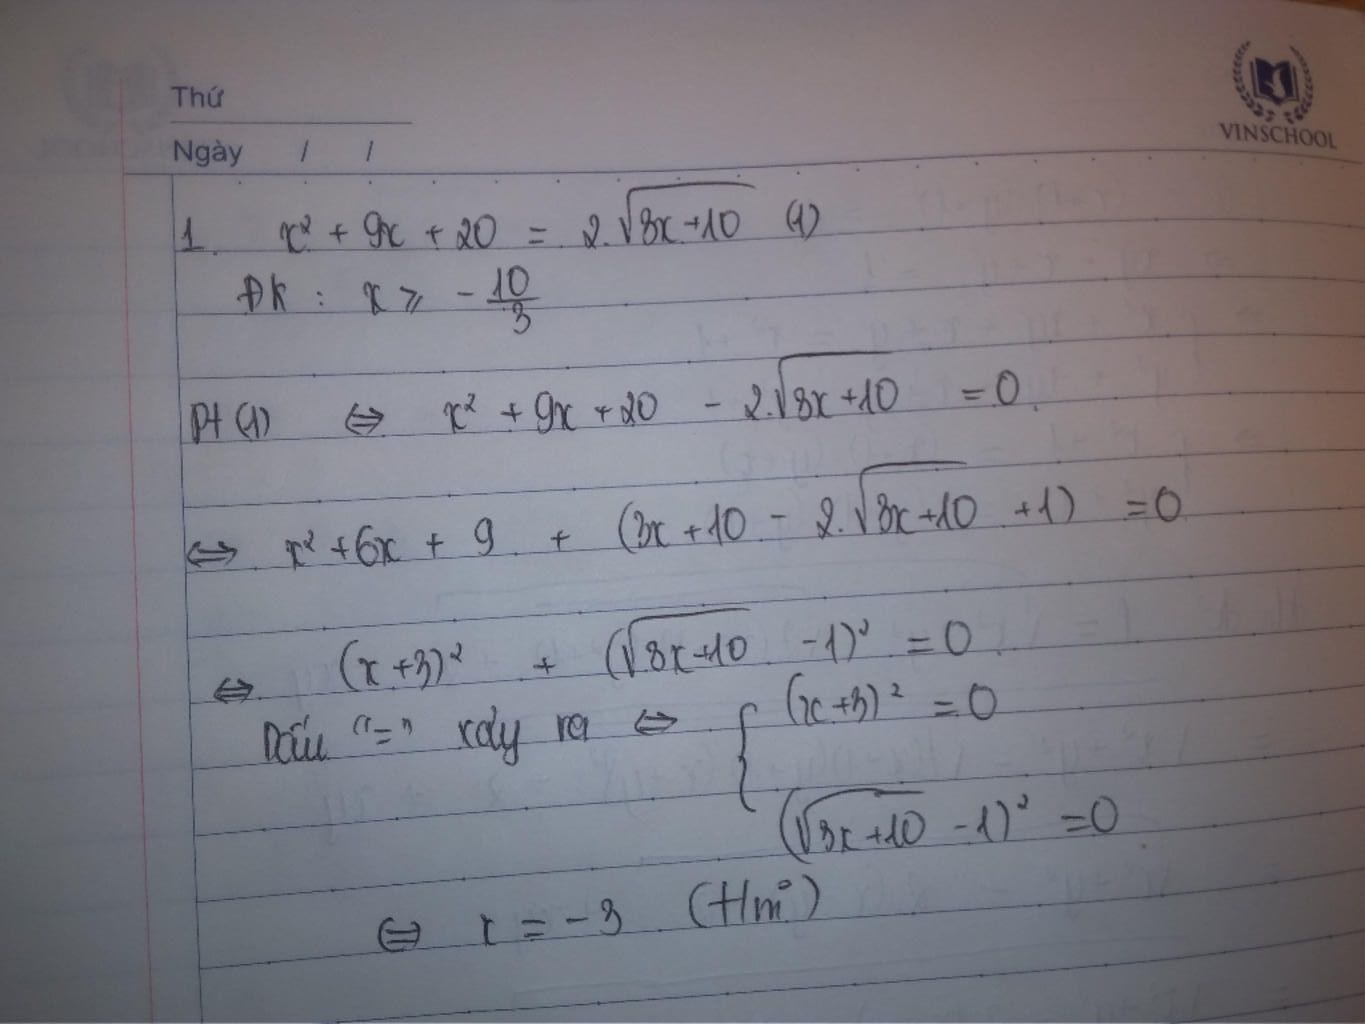 Thứ
VINSCHOOL
Ngày / /
1. x² + 9x + 20 = 2.√3x+10 (1)
ĐK : x ≥ - 10/3
Pt (1) ⇔ x² + 9x + 20 - 2.√3x+10 = 0
⇔ x² + 6x + 9 + (3x + 10 - 2.√3x+10 + 1) = 0
⇔ (x + 3)² + (√3x+10 - 1)² = 0
Dấu "=" xảy ra ⇔ { (x + 3)² = 0
(√3x+10 - 1)² = 0
⇔ x = -3 (t/m)